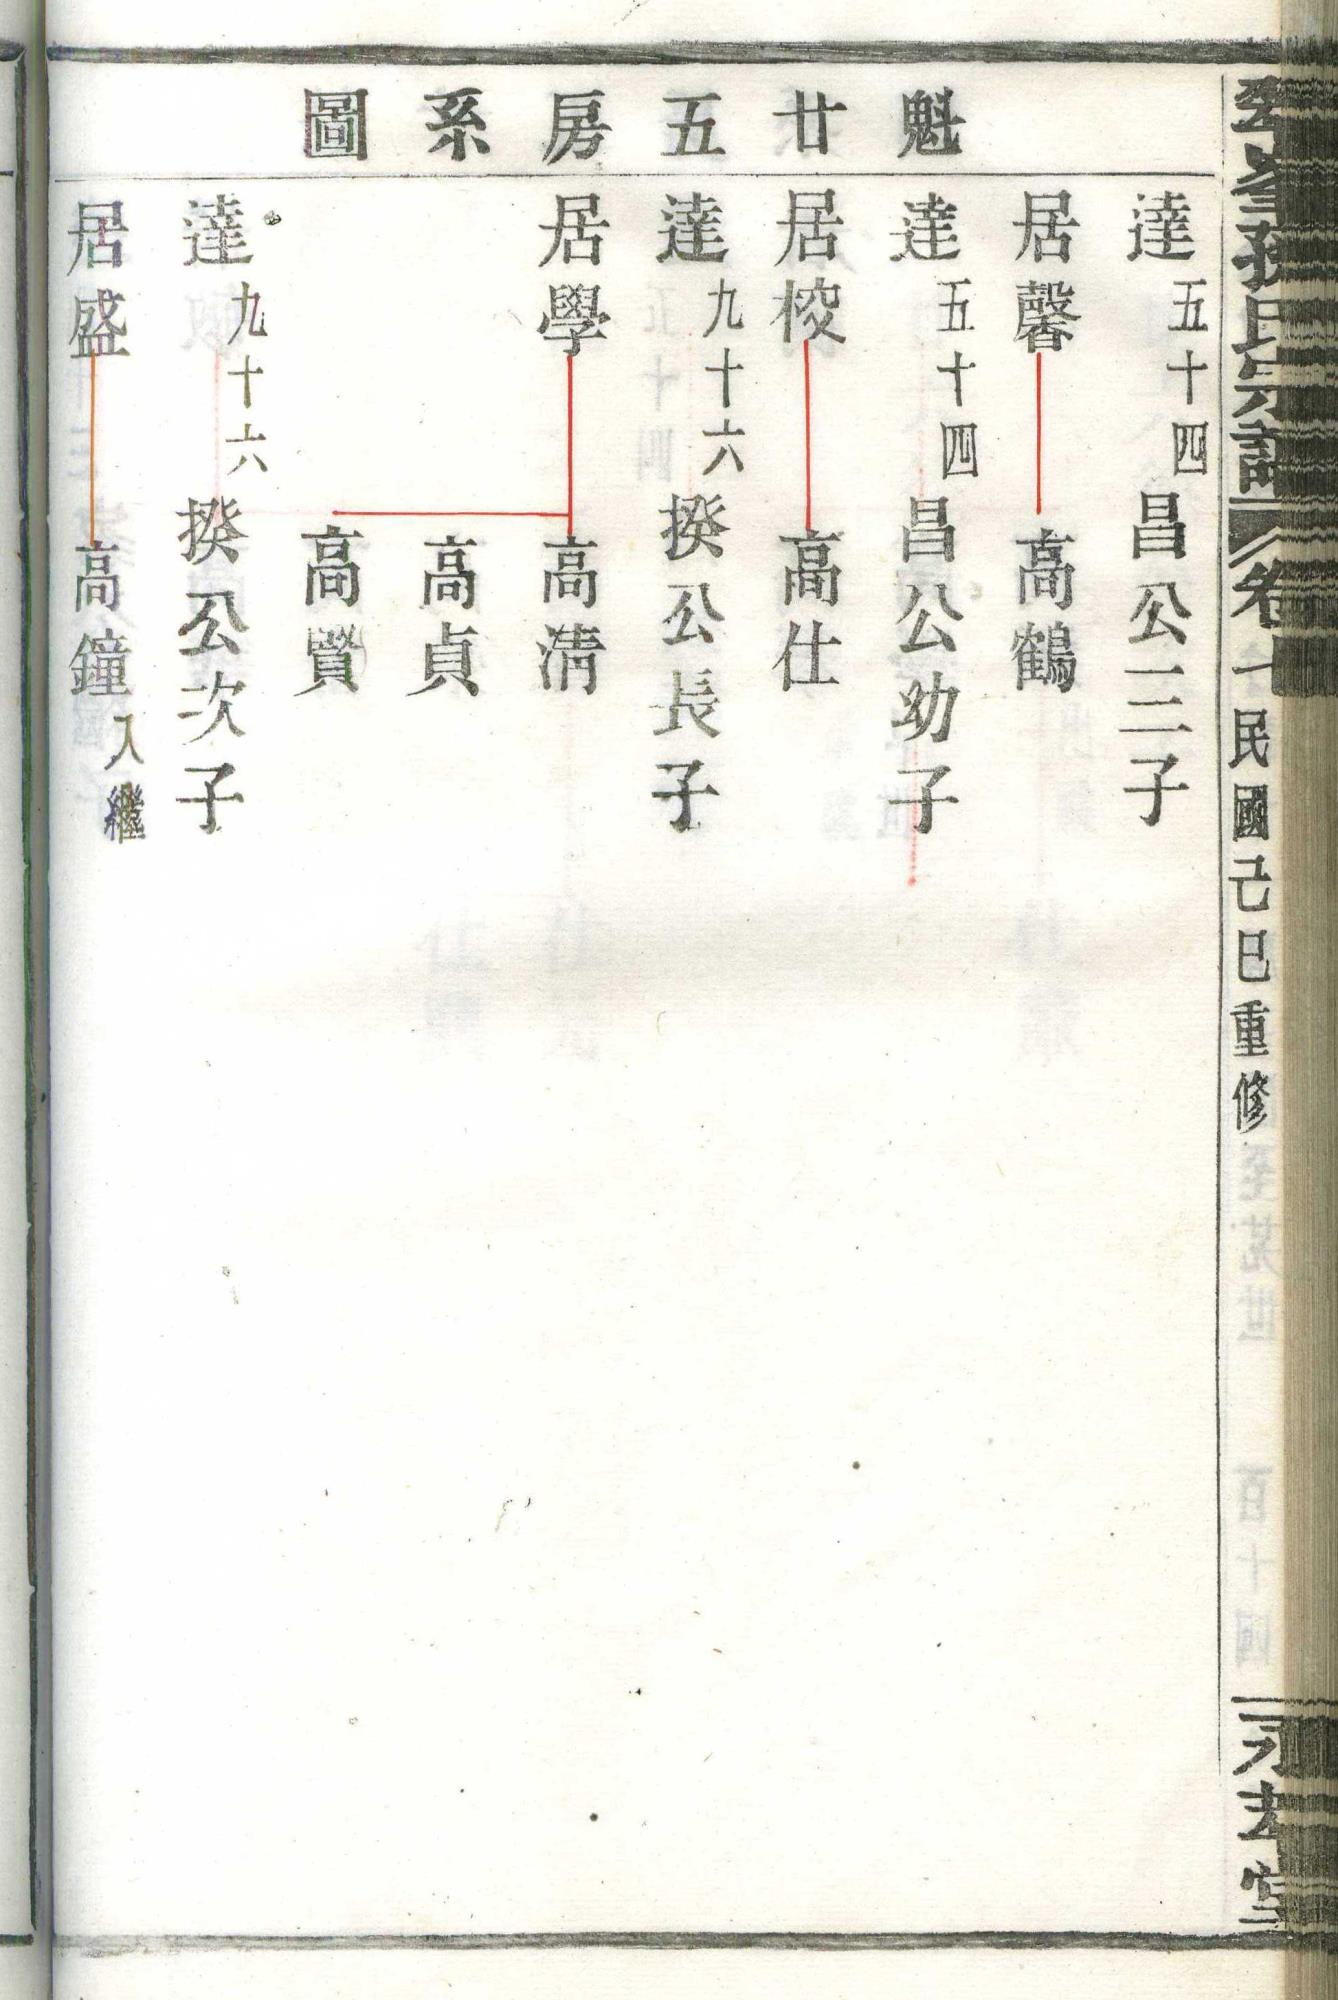 魁廿五房系圖
達五十四昌公三子
居馨 高鶴
達五十四昌公幼子
居校 高仕
達九十六揆公長子
居學 高清
高貞
高賢
達九十六揆公次子
居盛 高鐘入繼
孫氏宗譜 卷一 民國己巳重修
堂